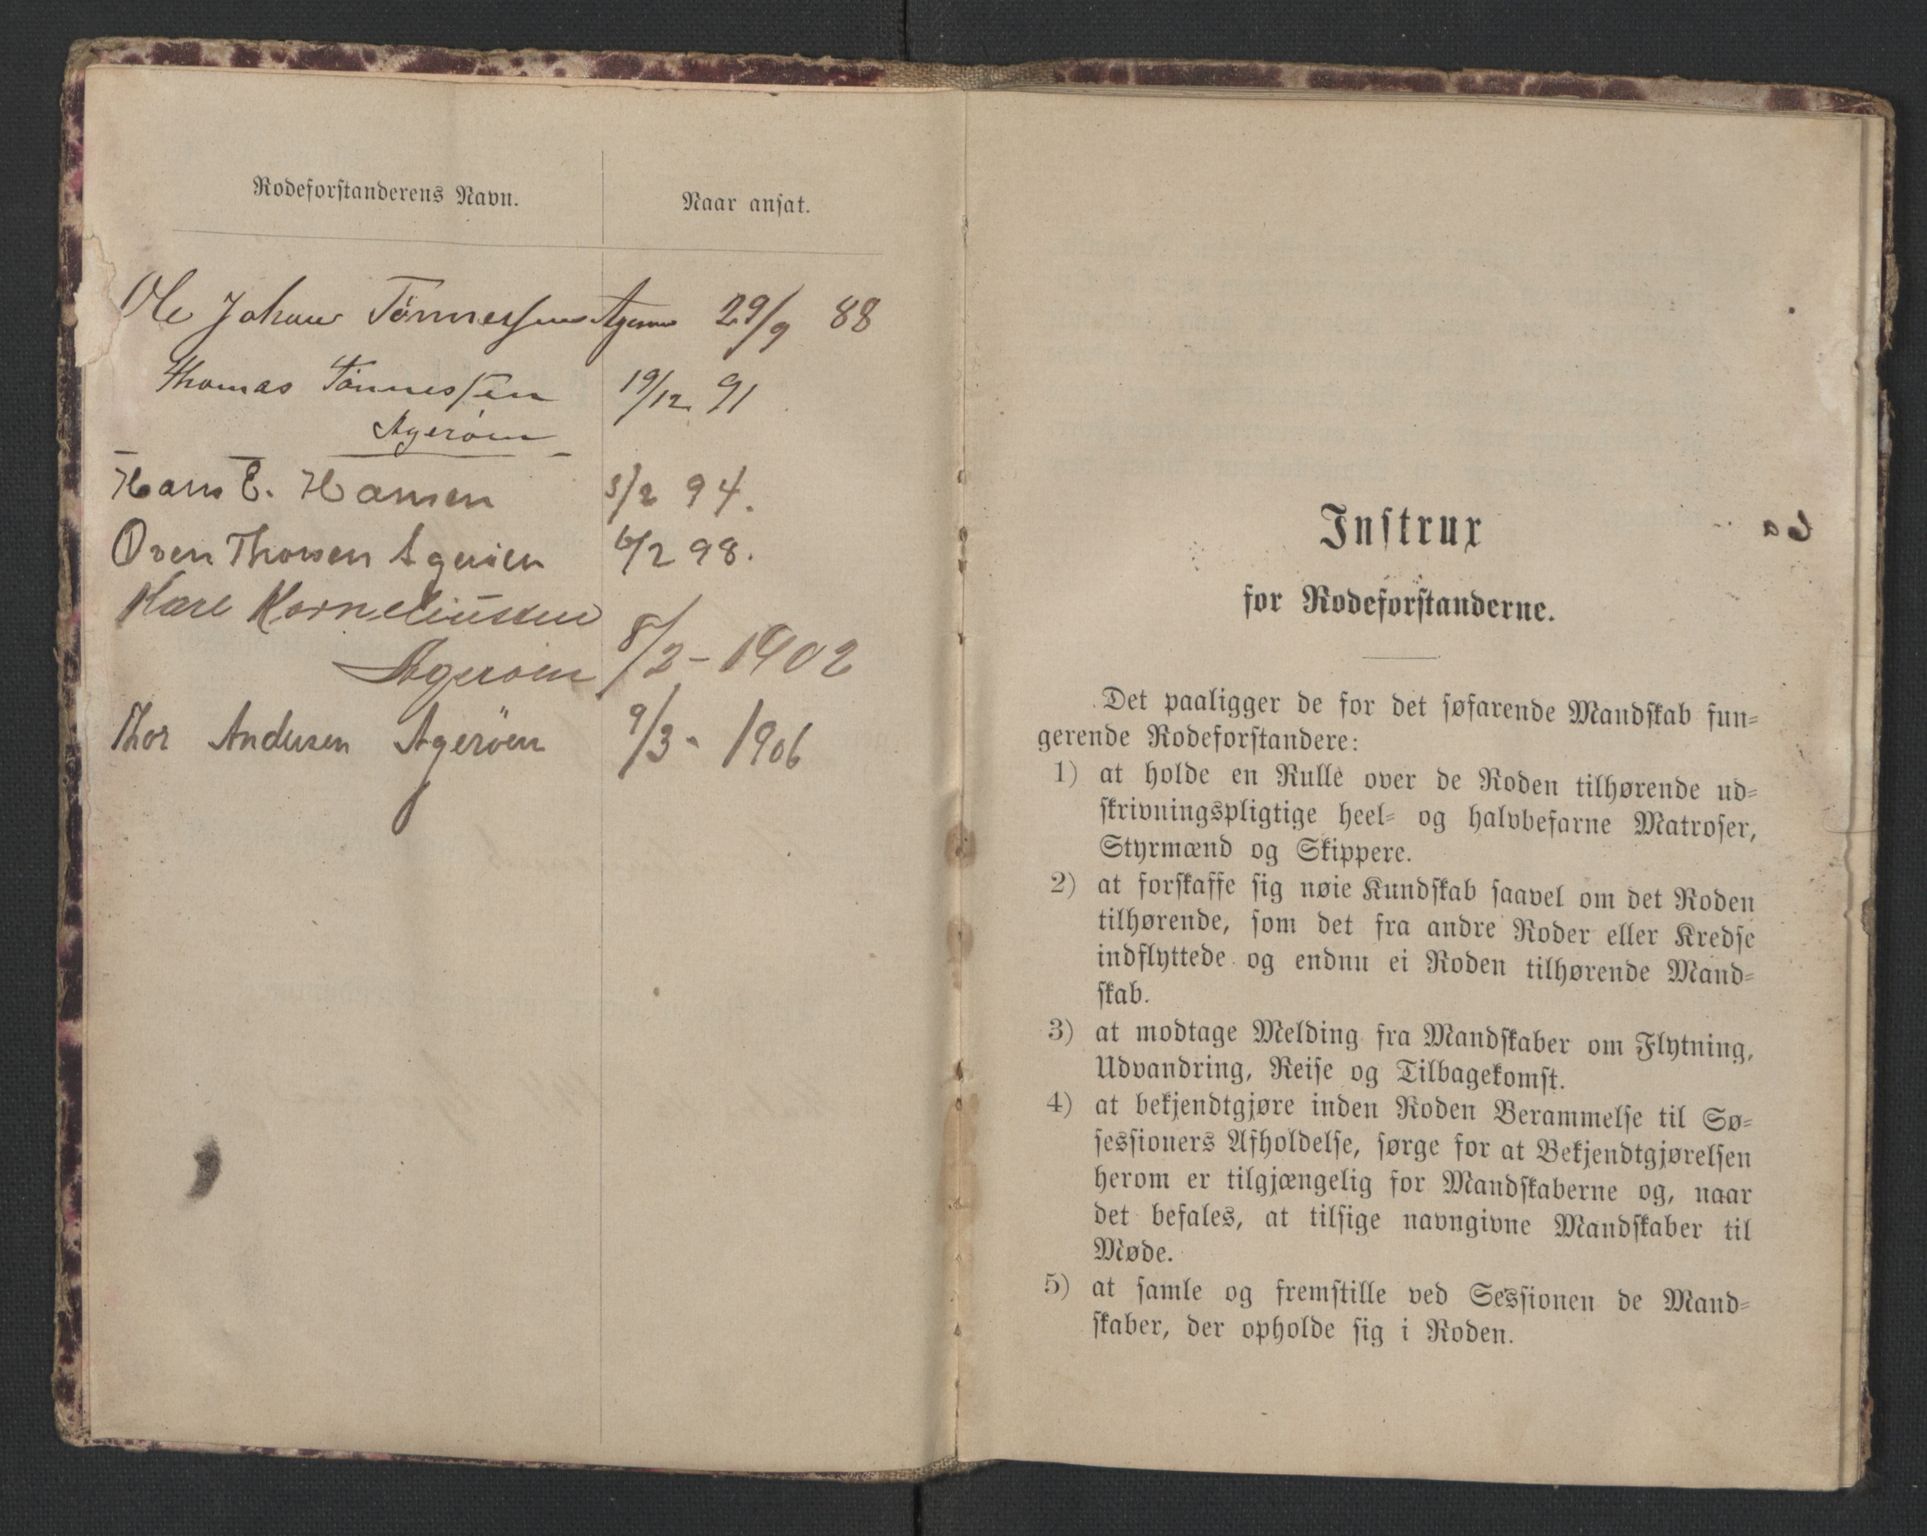 Rodeforstanderens Navn.
Naar ansat.
Ole Johan Tønnessen Agerøen 29/9 88
Thomas Tönnessen 19/12 91
Agerøen
Hans E. Hansen 5/2 94.
Oven Thorsen Agerøen 6/2 98.
Karl Korneliussen
Agerøen 8/2 - 1902
Thor Andersen Agerøen 9/3 - 1906
Instrux
for Rodeforstanderne.
Det paaligger de for det søfarende Mandskab fun-
gerende Rodeforstandere:
1) at holde en Rulle over de Roden tilhørende ud-
skrivningspligtige heel- og halvbefarne Matroser,
Styrmænd og Skippere.
2) at forskaffe sig nøie Kundskab saavel om det Roden
tilhørende, som det fra andre Roder eller Kredse
indflyttede og endnu ei Roden tilhørende Mand-
skab.
3) at modtage Melding fra Mandskaber om Flytning,
Udvandring, Reise og Tilbagekomst.
4) at bekjendtgjøre inden Roden Berammelse til Sø-
sessioners Afholdelse, sørge for at Bekjendtgjørelsen
herom er tilgjængelig for Mandskaberne og, naar
det befales, at tilsige navngivne Mandskaber til
Møde.
5) at samle og fremstille ved Sessionen de Mand-
skaber, der opholde sig i Roden.